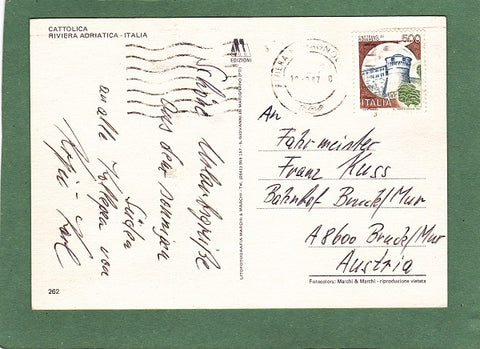 CATTOLICA
RIVIERA ADRIATICA - ITALIA
EDIZIONI
500
ITALIA
Schöne Urlaubsgrüße
aus dem sonnigen
Süden
an alle Kollegen von
Karl
An
Fahrmeister
Franz Kuss
Bahnhof Bruck/Mur
A8600 Bruck/Mur
Austria
LITOFOTOGRAFIA MARCHI & MARCHI
262
Fotocolors: Marchi & Marchi - riproduzione vietata